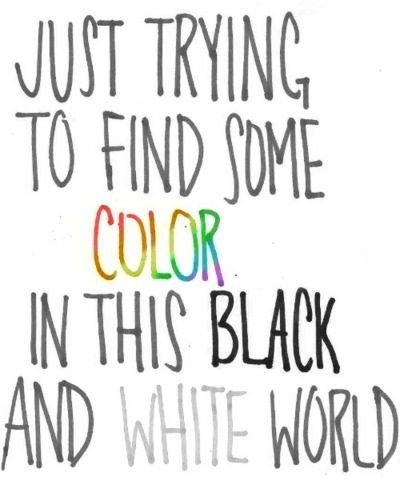 JUST TRYING
TO FIND SOME
COLOR
IN THIS BLACK
AND WHITE WORLD